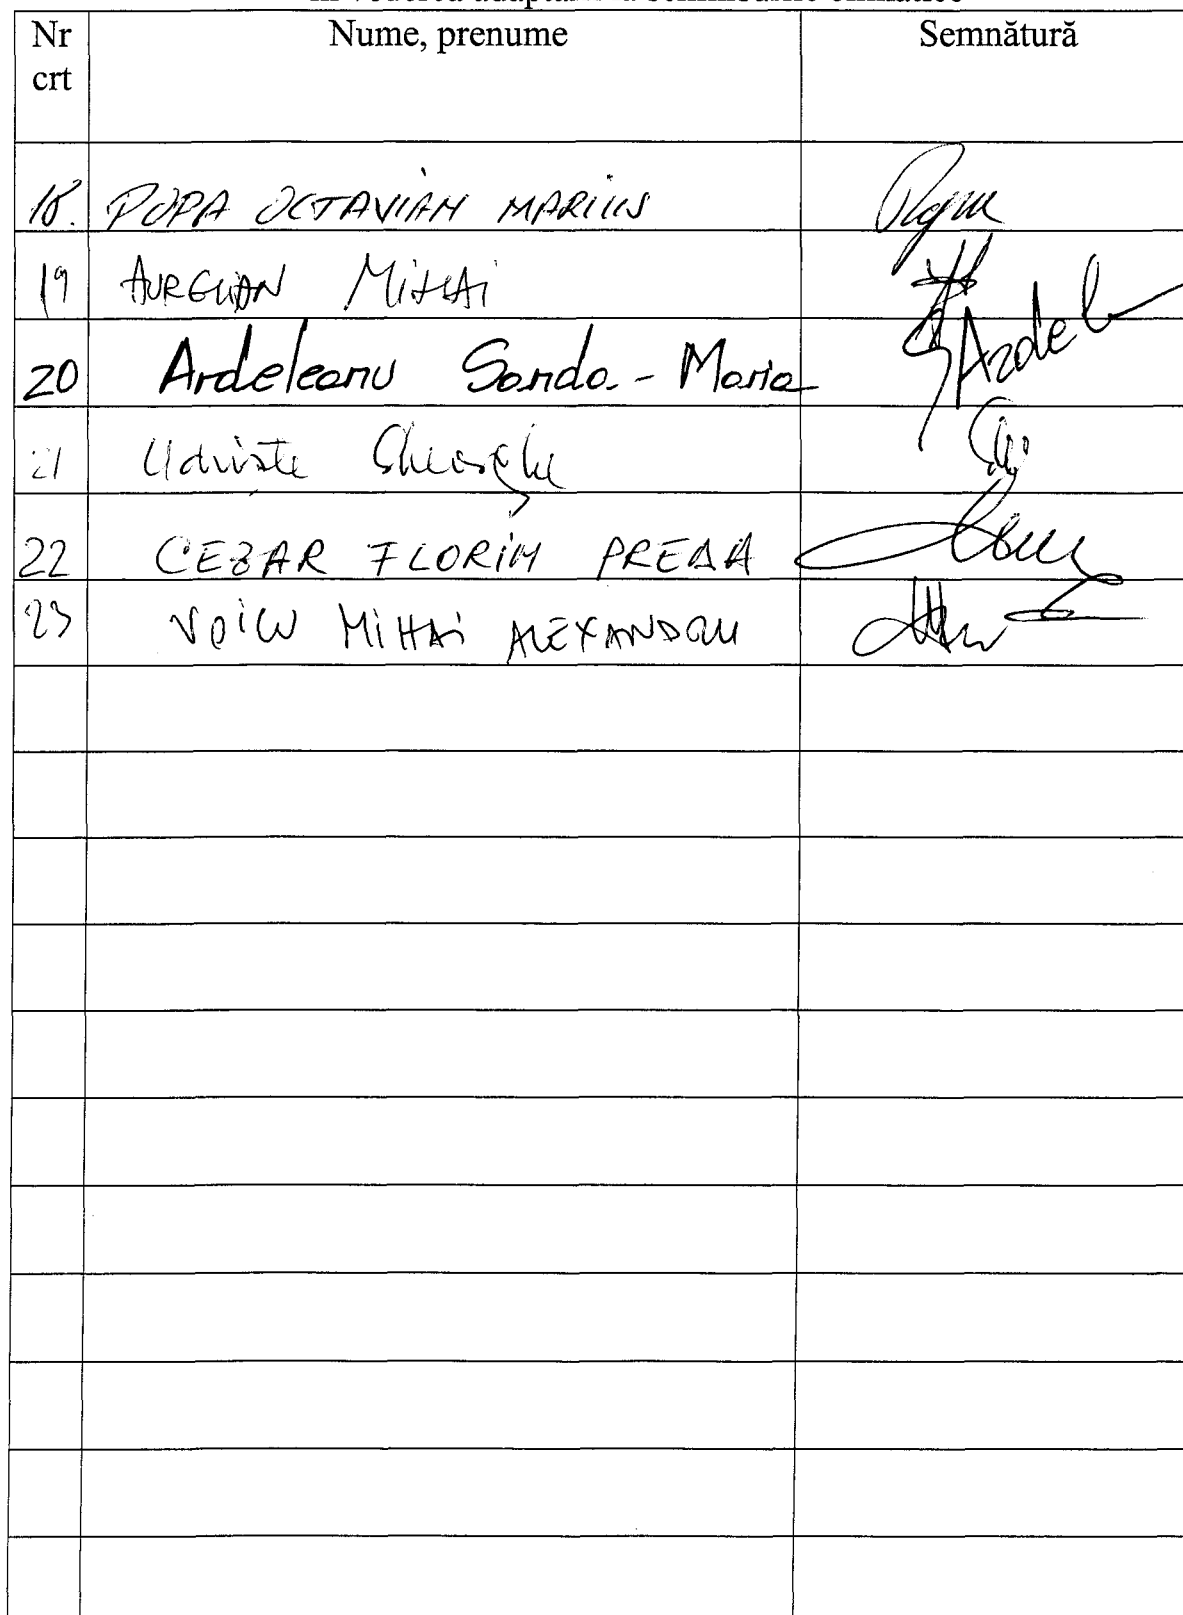 Nr Nume, prenume Semnătură
crt
18. POPA OCTAVIAN MARIUS
19 AURELIAN MIHAI
20 Ardeleanu Sanda-Maria Ardel
21 Udriște Gheorghe
22 CEZAR FLORIN PREDA
23 VOICU MIHAI ALEXANDRU